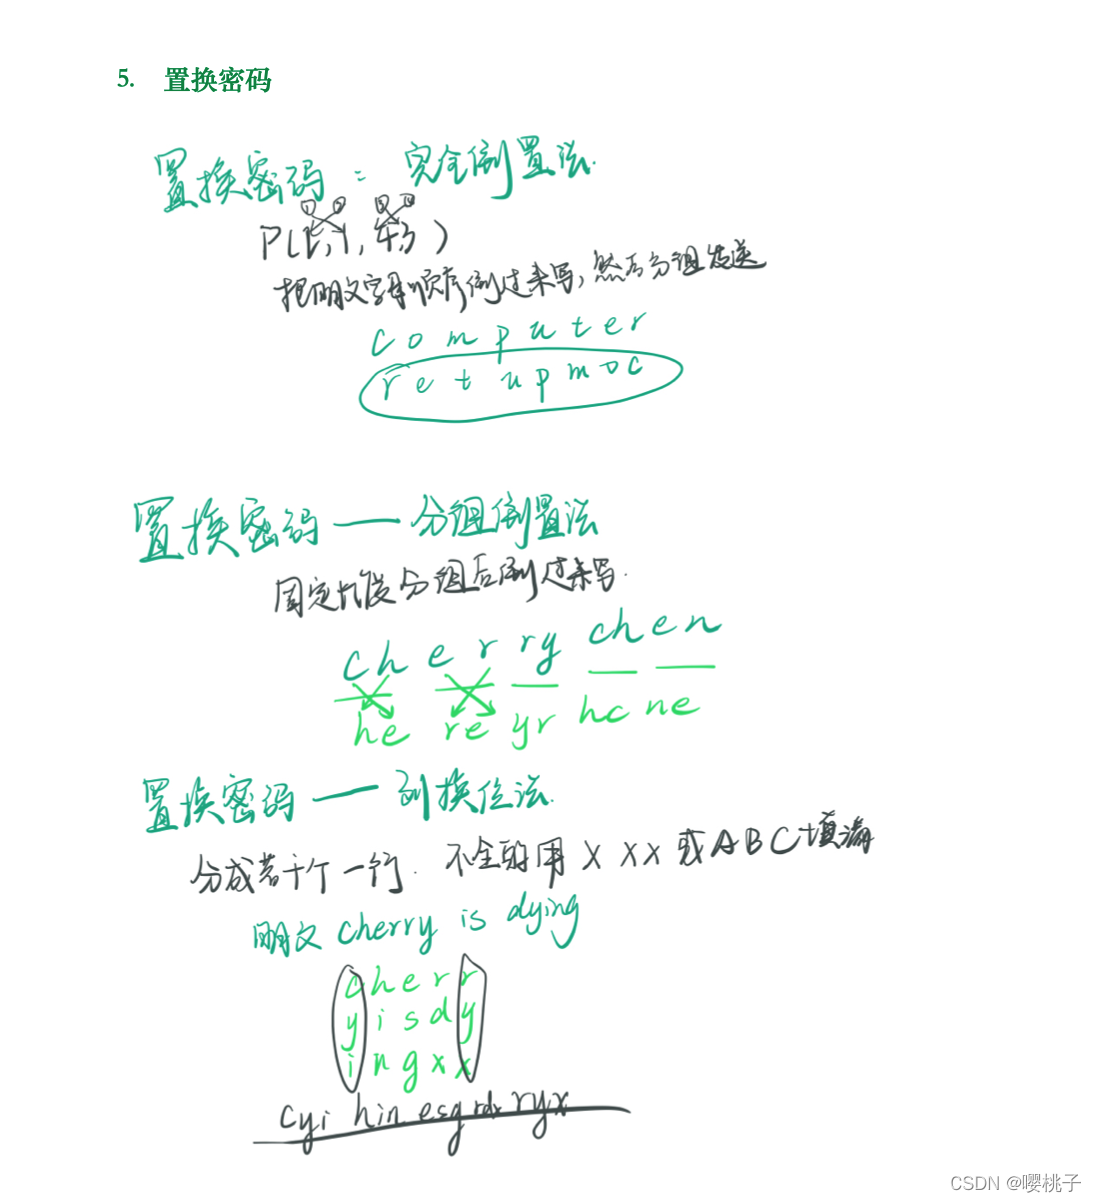 5. 置换密码
置换密码: 完全倒置法.
① ② ③ ④
P(2,1,4,3)
把明文字母顺序倒过来写,然后分组发送
computer
retupmoc
置换密码——分组倒置法
固定长度分组后倒过来写.
ch er ry ch en
he re yr hc ne
置换密码——列换位法.
分成若干个一行. 不全的用XXX或ABC填满
明文 cherry is dying
cherr
yisdy
ingxx
cyi hin esg rdx ryx
CSDN @嘤桃子